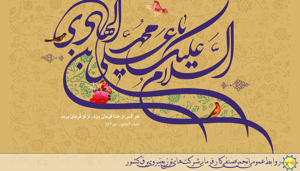 السلام علیک یا علی بن محمد الهادی النقی
هر کس از خدا فرمان برد، از او فرمان برند.
روابط عمومی انجمن صنفی کارفرمایی شرکت‌های توزیع نیروی برق کشور